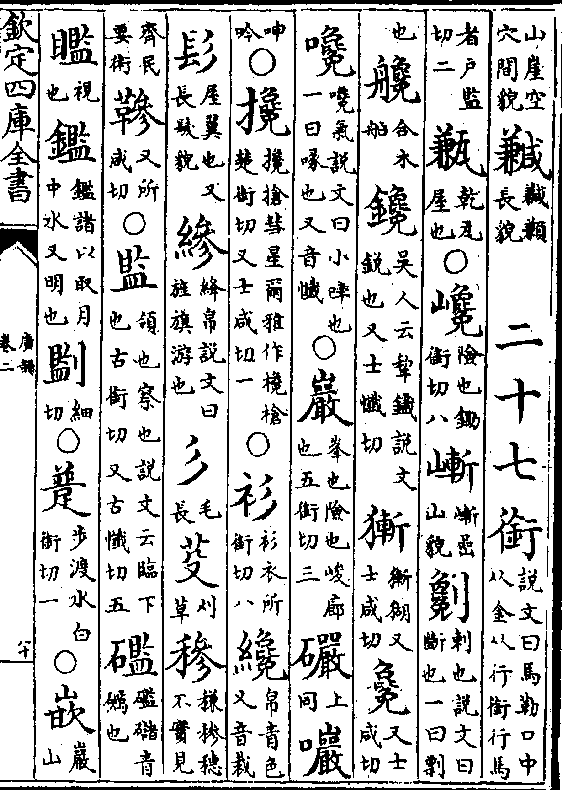 山崖空穴間貌 長貌 二十七銜 說文曰馬勒口中从金从行銜行馬
者戶監切二 㼓 乾瓦屋也 ○ 巉 險也鋤銜切八 嶄 嶄嵒山貌 劖 刺也說文曰斷也一曰剽
也 艬 合木船 鑱 吳人云犂鐵說文銳也又士懺切 獑 獑猢又士咸切 毚 又士咸切
嚵 嚵氣說文曰小啐也一曰喙也又音懺 ○ 巖 峯也險也峻廊也五銜切三 礹 上同 㘙
呻吟 ○ 攙 攙搶彗星爾雅作欃槍楚銜切又士咸切一 ○ 衫 衫衣所銜切八 纔 帛青色又音裁
髟 屋翼也又長髮貌 縿 絳帛說文曰旌旗游也 彡 毛長 芟 刈草 穇 穇穗不實見
齊民要術 又所咸切 ○ 監 領也察也說文云臨下也古銜切又古懺切五 礛 礛䃴青礪也
視也 鑑 鑑諸以取月中水又明也 㔋 細切 ○ 步渡水白銜切一 ○ 嵌 巖山
欽定四庫全書 卷二 八十